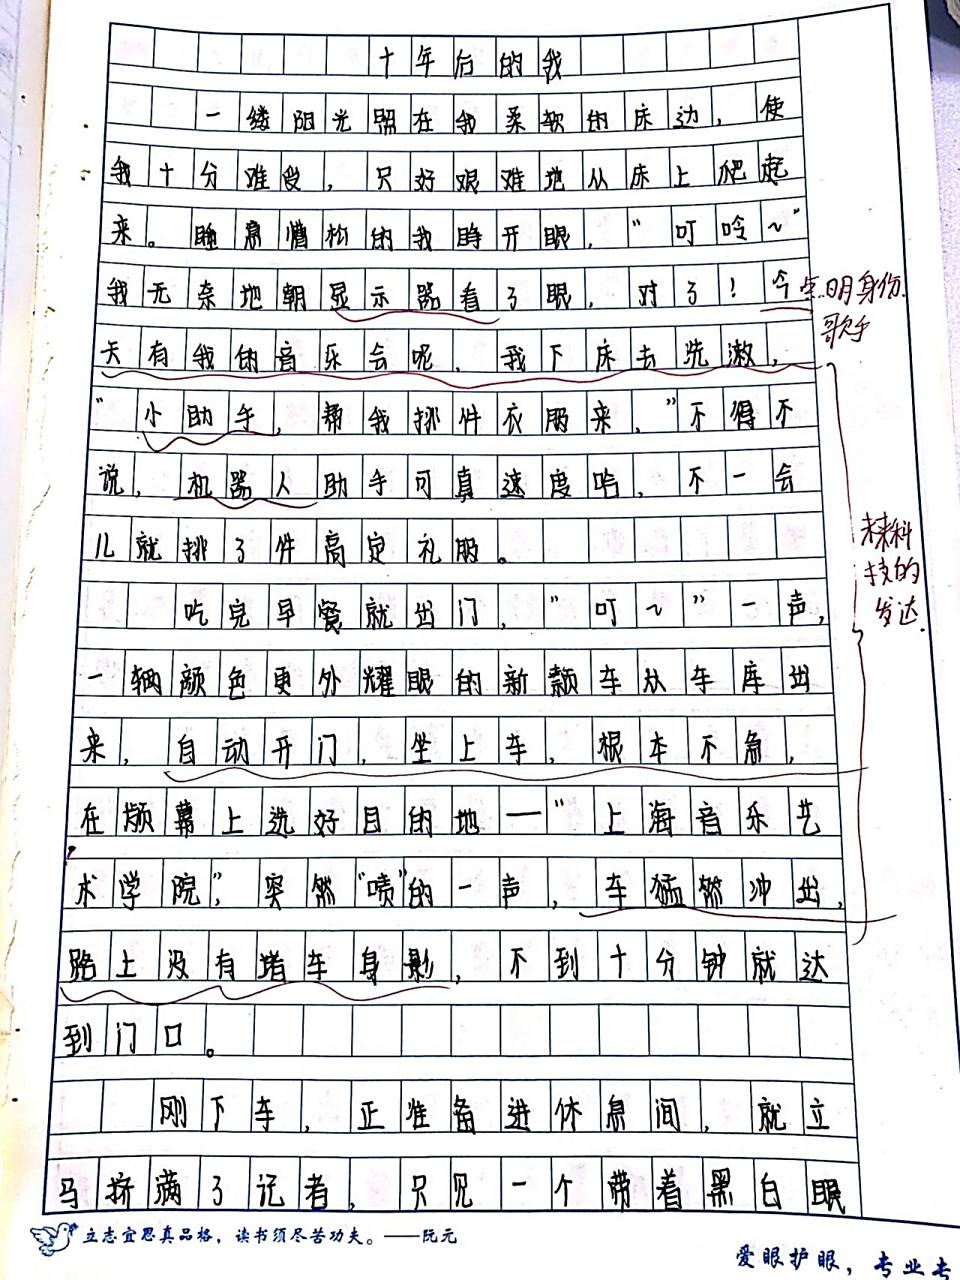 十年后的我
一缕阳光照在我柔软的床边，使
我十分难受，只好艰难地从床上爬起
来。睡意惺松的我睁开眼，“叮呤~”
我无奈地朝显示器看了眼，对了！今
天有我的音乐会呢，我下床去洗漱，
“小助手，帮我挑件衣服来，”不得不
说，机器人助手可真速度哈，不一会
儿就挑了件高定礼服。
吃完早餐就出门，“叮~”一声，
一辆颜色更外耀眼的新款车从车库出
来，自动开门，坐上车，根本不急，
在频幕上选好目的地——“上海音乐艺
术学院”，突然“喷”的一声，车猛然冲出，
路上没有堵车身影，不到十分钟就达
到门口。
刚下车，正准备进休息间，就立
马挤满了记者，只见一个带着黑白眼
点明身份.
歌手
未来科
技的
发达.
立志宜思真品格，读书须尽苦功夫。——阮元
爱眼护眼，专业专